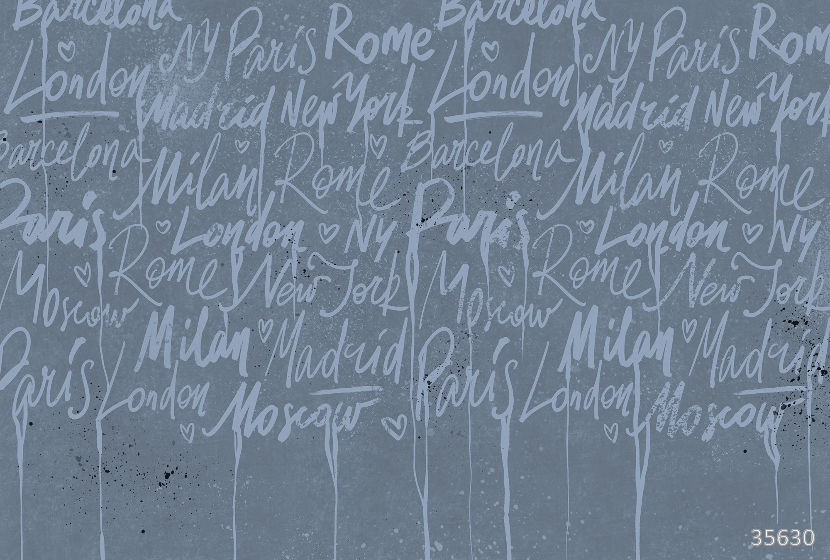 Barcelona Barcelona
London NY Paris Rome London NY Paris Rom
Madrid New York Madrid New York
Barcelona Milan Rome Barcelona Milan Rome
Paris London NY Paris London NY
Moscow Rome New York Moscow Rome New York
Paris Milan Madrid Paris Milan Madrid
London Moscow London Moscow
35630